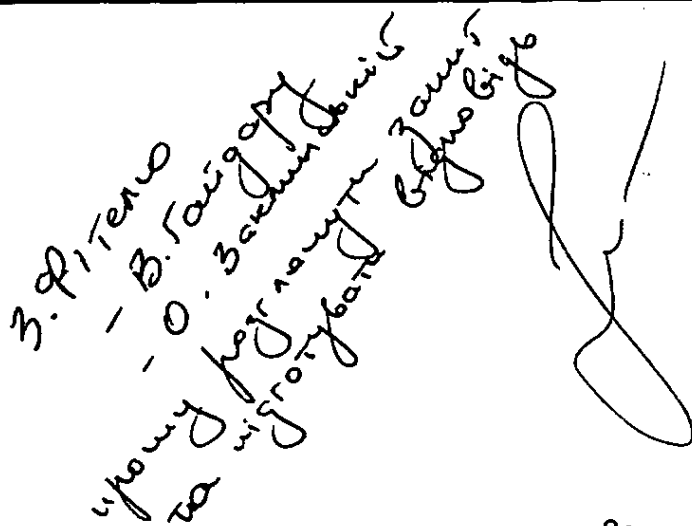 З. Фітелю
- В. Гайдару
- О. Заклинській
прошу розглянути запит
та підготувати відповідь